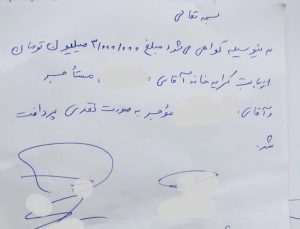 بسمه تعالی
بدینوسیله گواهی می شود مبلغ ۳/۰۰۰/۰۰۰ میلیون تومان
از بابت کرایه خانه آقای مستأجر
و آقای موجر به صورت نقدی پرداخت
شد.